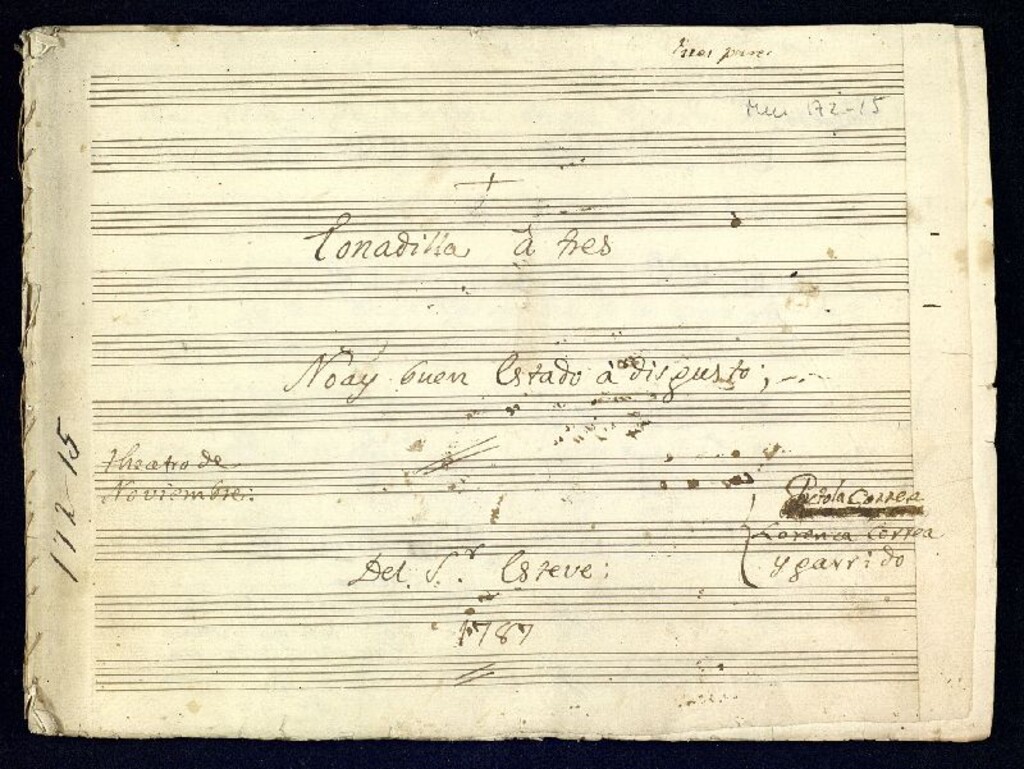 Mus 172-15
Tonadilla à tres
Noay buen Estado à disgusto;
172-15
theatro de
Noviembre:
Correa
Lorenza Correa
y garrido
Del S.r Esteve:
1787